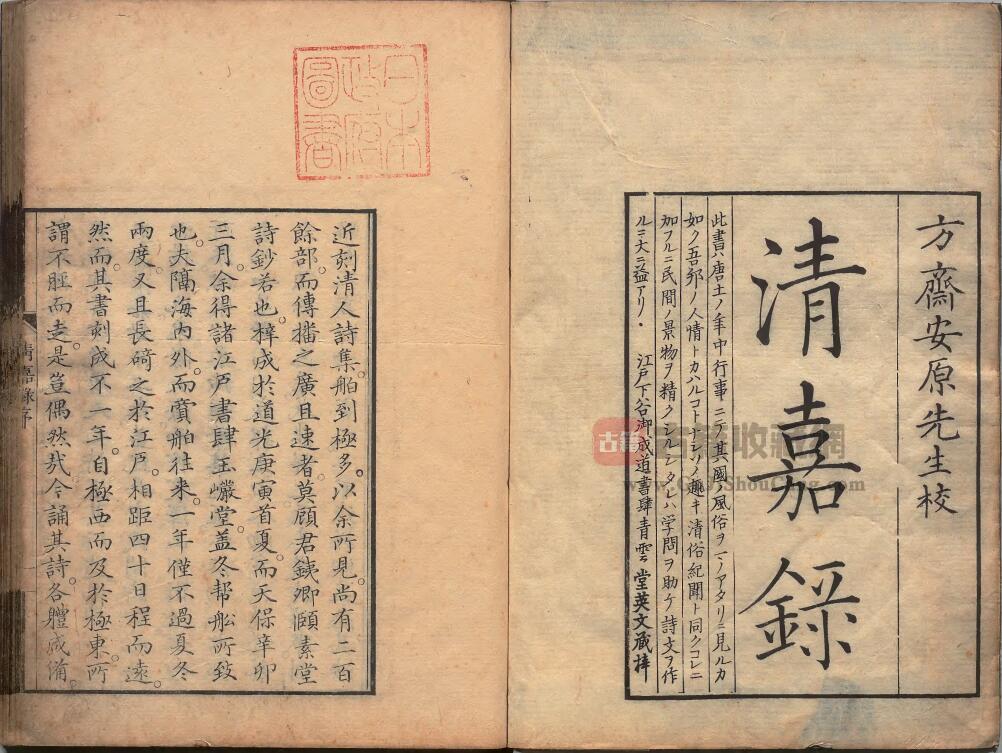 方齋安原先生校
清嘉録
此書ハ唐土ノ年中行事ニテ其國ノ風俗ヲマノアタリニ見ルカ
如ク吾邦ノ人情トカハルコトナシソノ趣キ清俗紀聞ト同クコレニ
加フルニ民間ノ景物ヲ精クシルシタレハ学問ヲ助ケ詩文ヲ作
ルニ大ニ益アリ 江戸下谷御成道書肆青雲堂英文蔵梓
日本
政府
圖書
近刻清人詩集舶到極多。以余所見。尚有二百
餘部。而傳播之廣且速者。莫顧君鐵卿頤素堂
詩鈔若也。梓成於道光庚寅首夏。而天保辛卯
三月。余得諸江戸書肆玉巖堂。盖冬帮舩所致
也。夫隔海内外。而賣舶往来。一年僅不過夏冬
兩度。又且長碕之於江戸。相距四十日程而遠。
然而其書刻成不一年。自極西而及於極東。所
謂不脛而走。是豈偶然哉。今誦其詩。各體咸備。
清嘉録序
古籍
收藏網